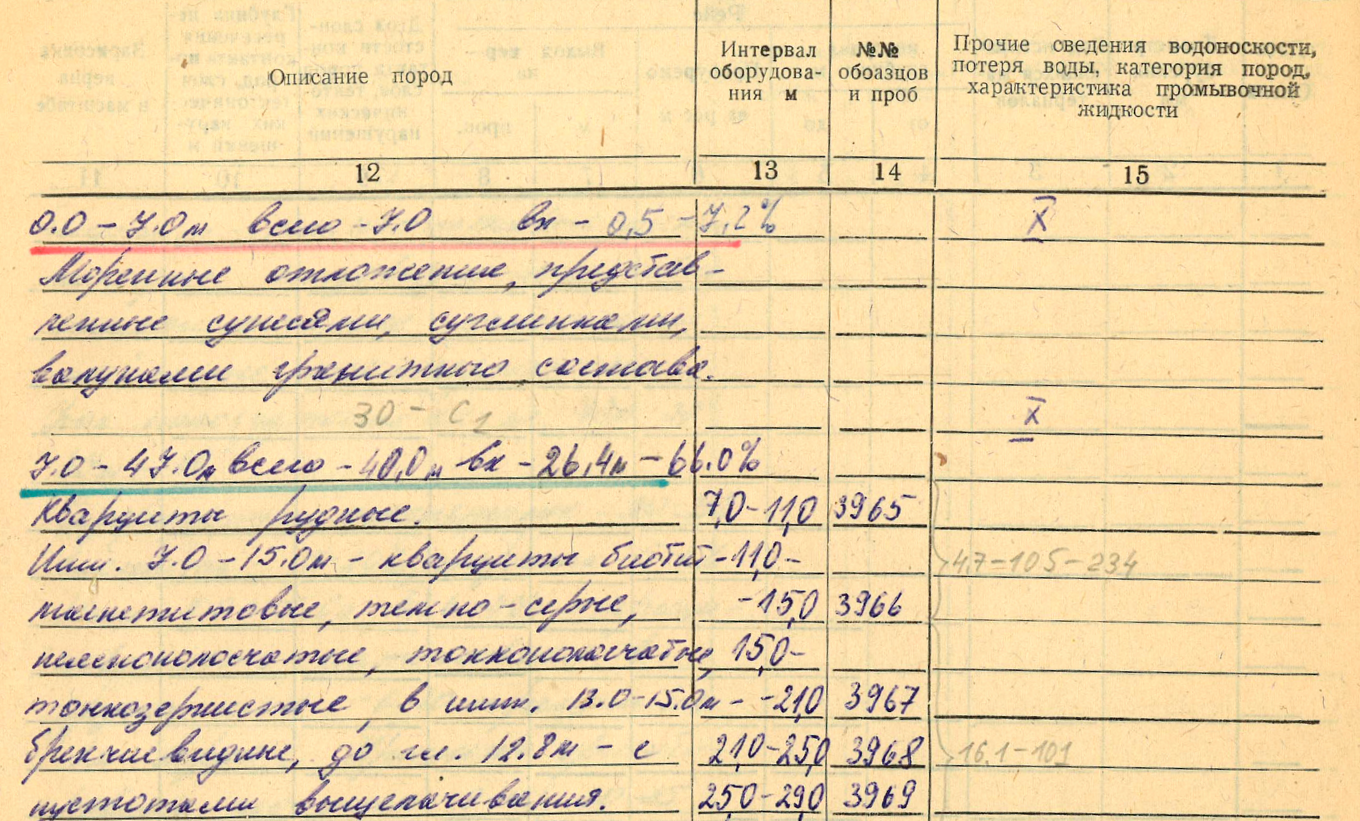 Описание пород
Интервал
оборудова-
ния м
№№
обоазцов
и проб
Прочие сведения водоноскости,
потеря воды, категория пород,
характеристика промывочной
жидкости
12 13 14 15
0.0 - 7.0м всего - 7.0 вк - 0,5 - 7,2% X
Моренные отложения, представ-
ленные супесями, суглинками,
валунами гранитного состава.
30 - С1 X
7.0 - 47.0м всего - 40,0м вк - 26,4м - 66.0%
Кварциты рудные. 7,0-11,0 3965
Инт. 7.0 - 15.0м - кварциты биотит- 11,0- 47-105-234
магнетитовые, темно-серые, -15,0 3966
неяснополосчатые, тонкополосчатые, 15,0-
тонкозернистые, в инт. 13.0-15.0м - -21,0 3967
брекчиевидные, до гл. 12.8м - с 21,0-25,0 3968 161-101
пустотами выщелачивания. 25,0-29,0 3969